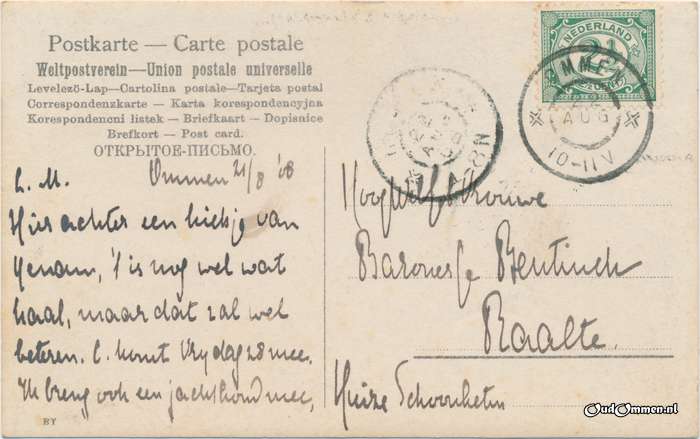 Postkarte — Carte postale
Weltpostverein—Union postale universelle
Levelező-Lap—Cartolina postale—Tarjeta postal
Correspondenzkarte — Karta korespondencyjna
Korespondencni listek — Briefkaart — Dopisnice
Brefkort — Post card.
ОТКРЫТОЕ-ПИСЬМО.
L. M. Ommen 21/8 '08
Hier achter een kiekje van
, 't is nog wel wat
kaal, maar dat zal wel
beteren. C. komt Vrijdag 28 mee.
Ik breng ook een jachthond mee,
BY
NEDERLAND
2½
OMMEN
AUG
10-11V
AUG
8-9N
Hoogwelgeb. Vrouwe
Baronesse Bentinck
Raalte.
Huize Schoonheten
OudOmmen.nl